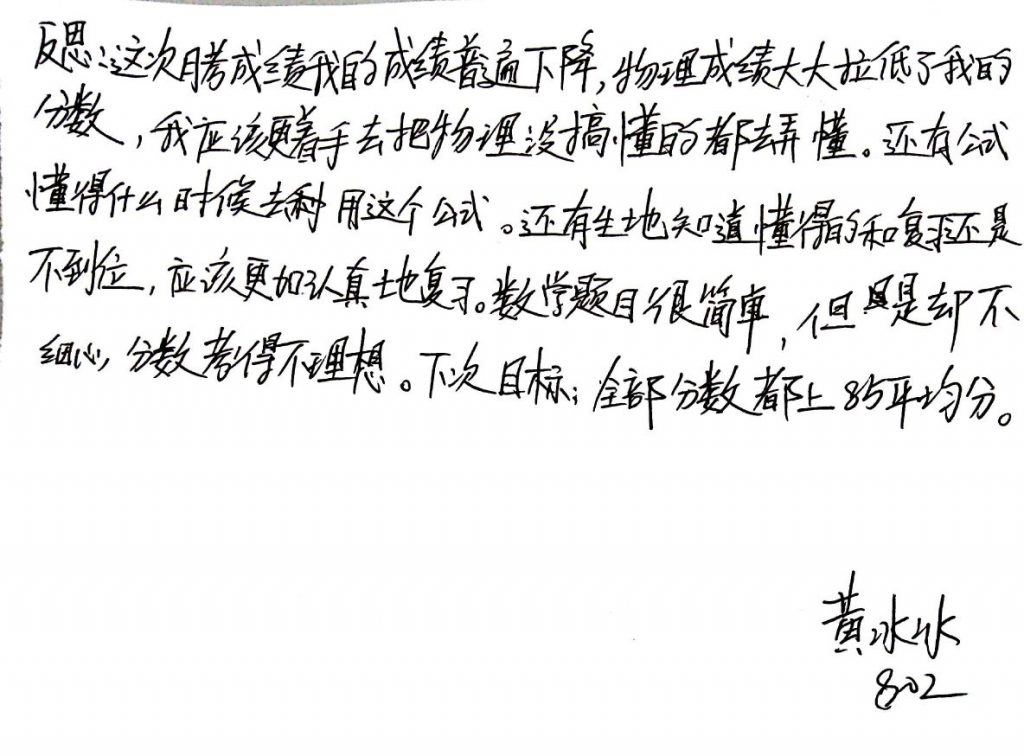 反思:这次月考成绩我的成绩普遍下降,物理成绩大大拉低了我的
分数,我应该更着手去把物理没搞懂的都去弄懂。还有公式
懂得什么时候去利用这个公式。还有生地知道懂得的和复习还是
不到位,应该更加认真地复习。数学题目很简单,但是却不
细心,分数考得不理想。下次目标:全部分数都上85平均分。
黄冰冰
802